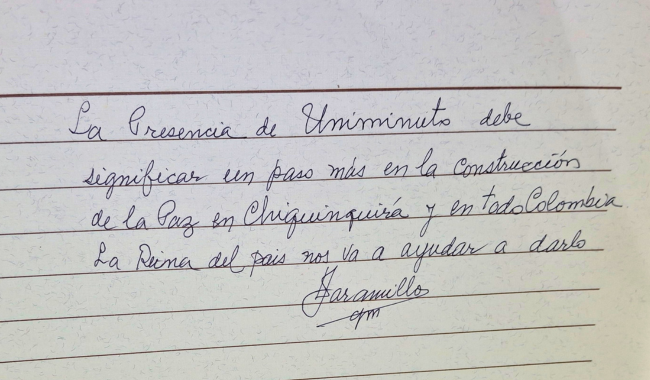 La Presencia de Uniminuto debe
significar un paso más en la construcción
de la Paz en Chiquinquirá y en todo Colombia
La Reina del pais nos va a ayudar a darlo
Jaramillo
cjm